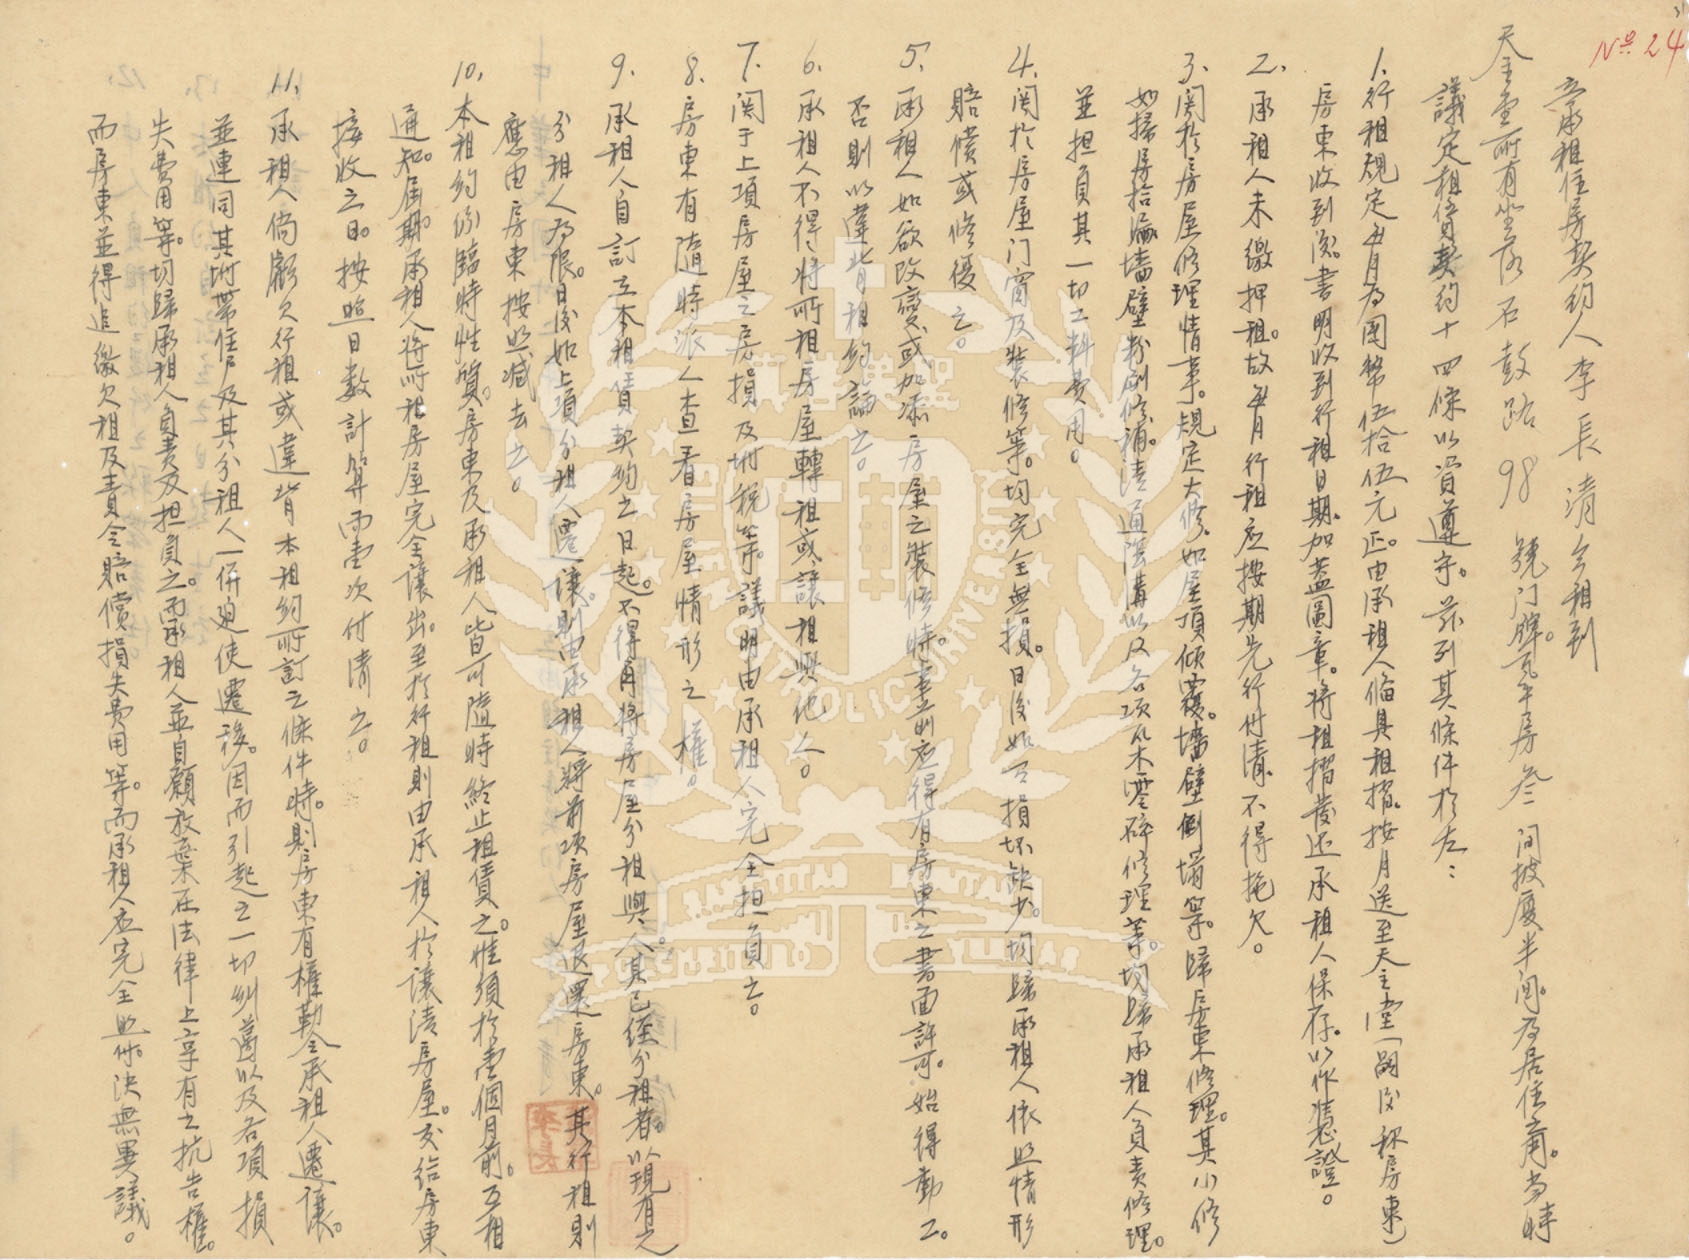 Nº 24
立承租住房契約人李長清今租到
天主堂所有坐落石鼓路98號門牌。瓦平房叁間披廈半间。為居住之用。当時
議定租賃契約十四條以資遵守。茲列其條件於左：
1. 行租規定每月為國幣伍拾伍元正。由承租人備具租摺。按月送至天主堂（嗣後称房東）
房東收到後。書明收到行租日期。加蓋圖章。將租摺發还承租人保存。以作憑證。
2. 承租人未繳押租。故每月行租应按期先行付清。不得拖欠。
3. 関於房屋修理情事。規定大修。如屋頂傾覆。墻壁倒塌等。歸房東修理。其小修
如掃房拾漏墻壁粉刷修補。清通溝以及各項瓦木零碎修理等。均歸承租人負責修理。
並担負其一切工料費用。
4. 関於房屋门窗及裝修等。均完全無損。日後如有損坏缺少。均歸承租人依照情形
賠償或修復之。
5. 承租人如欲改變或加添房屋之裝修時。事前应得有房東之書面許可。始得動工。
否則以違背租約論之。
6. 承租人不得將所租房屋轉租或讓租與他人。
7. 関于上項房屋之房捐及附税等。議明由承租人完全担負之。
8. 房東有隨時派人查看房屋情形之權。
9. 承租人自訂立本租賃契約之日起。不得再將房屋分租與人。其已經分租者。以現有之
分租人為限。日後如上項分租人遷讓。則由承租人將前項房屋退還房東。其行租則
應由房東按照減去之。
10. 本租約係臨時性質。房東及承租人皆可隨時終止租賃之。惟須於壹個月前。互相
通知。屆期。承租人將所租房屋完全讓出。至於行租則由承租人於讓清房屋。交給房東
接收之日。按照日数計算而壹次付清之。
11. 承租人倘虧欠行租或違背本租約所訂之條件時。則房東有權勒令承租人遷讓。
並連同其附帶住户及其分租人一併迫使遷移。因而引起之一切糾葛以及各項損
失費用等。切歸承租人負責及担負之。而承租人並自願放棄在法律上享有之抗告權。
而房東並得追繳欠租及責令賠償損失費用等。而承租人应完全照付。決無異議。